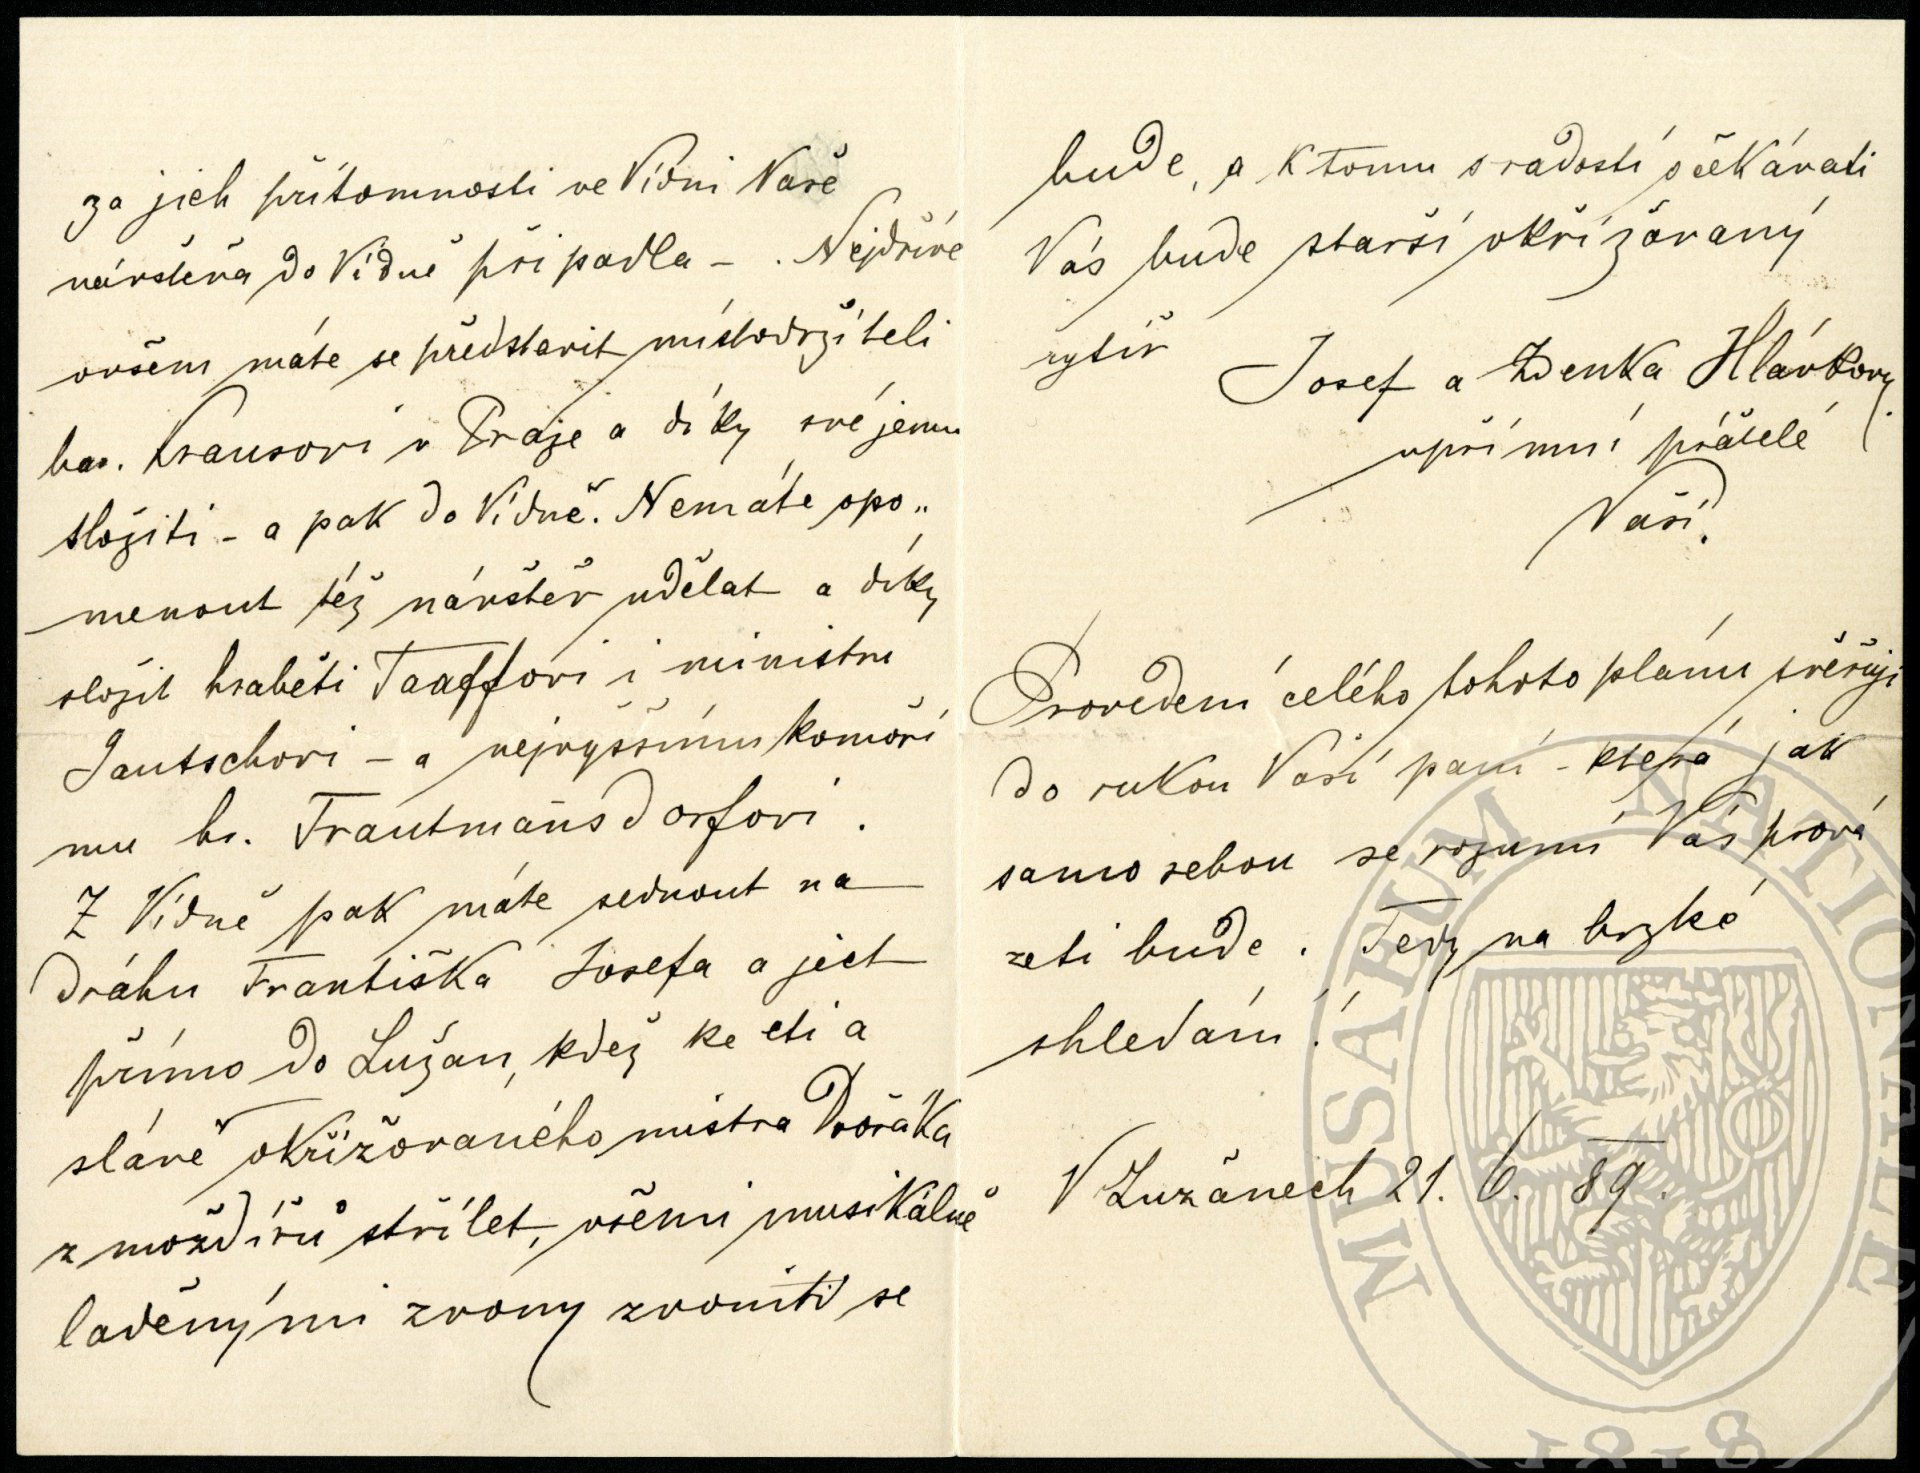 za jich přítomnosti ve Vídni Vaše
návštěva do Vídně připadla – . Nejdříve
ovšem máte se představit místodržiteli
bar. Krausovi v Praze a díky své jemu
složiti – a pak do Vídně. Nemáte opo„
menout též návštěv udělat a díky
složit hraběti Taaffovi i ministru
Gautschovi – a nejvyššímu komoří
mu hr. Trautmannsdorfovi.
Z Vídně pak máte sednout na
dráhu Františka Josefa a ject
přímo do Lužan, kdež ke cti a
slávě okřižovaného mistra Dvořáka
z moždířů střílet, všemi musikálně
laděnými zvony zvoniti se
bude, a k tomu s radostí očekávati
Vás bude starší okřižovaný
rytíř
Josef a Zdenka Hlávkovy
upřímní přátelé
Vaši.
Provedení celého tohoto plánu svěřuji
do rukou Vaší paní – která jak
samo sebou se rozumí Vás prová
zeti bude. Tedy na brzké
shledání!
V Lužanech 21. 6. 89.
MUSAEUM NATIONALE
1818